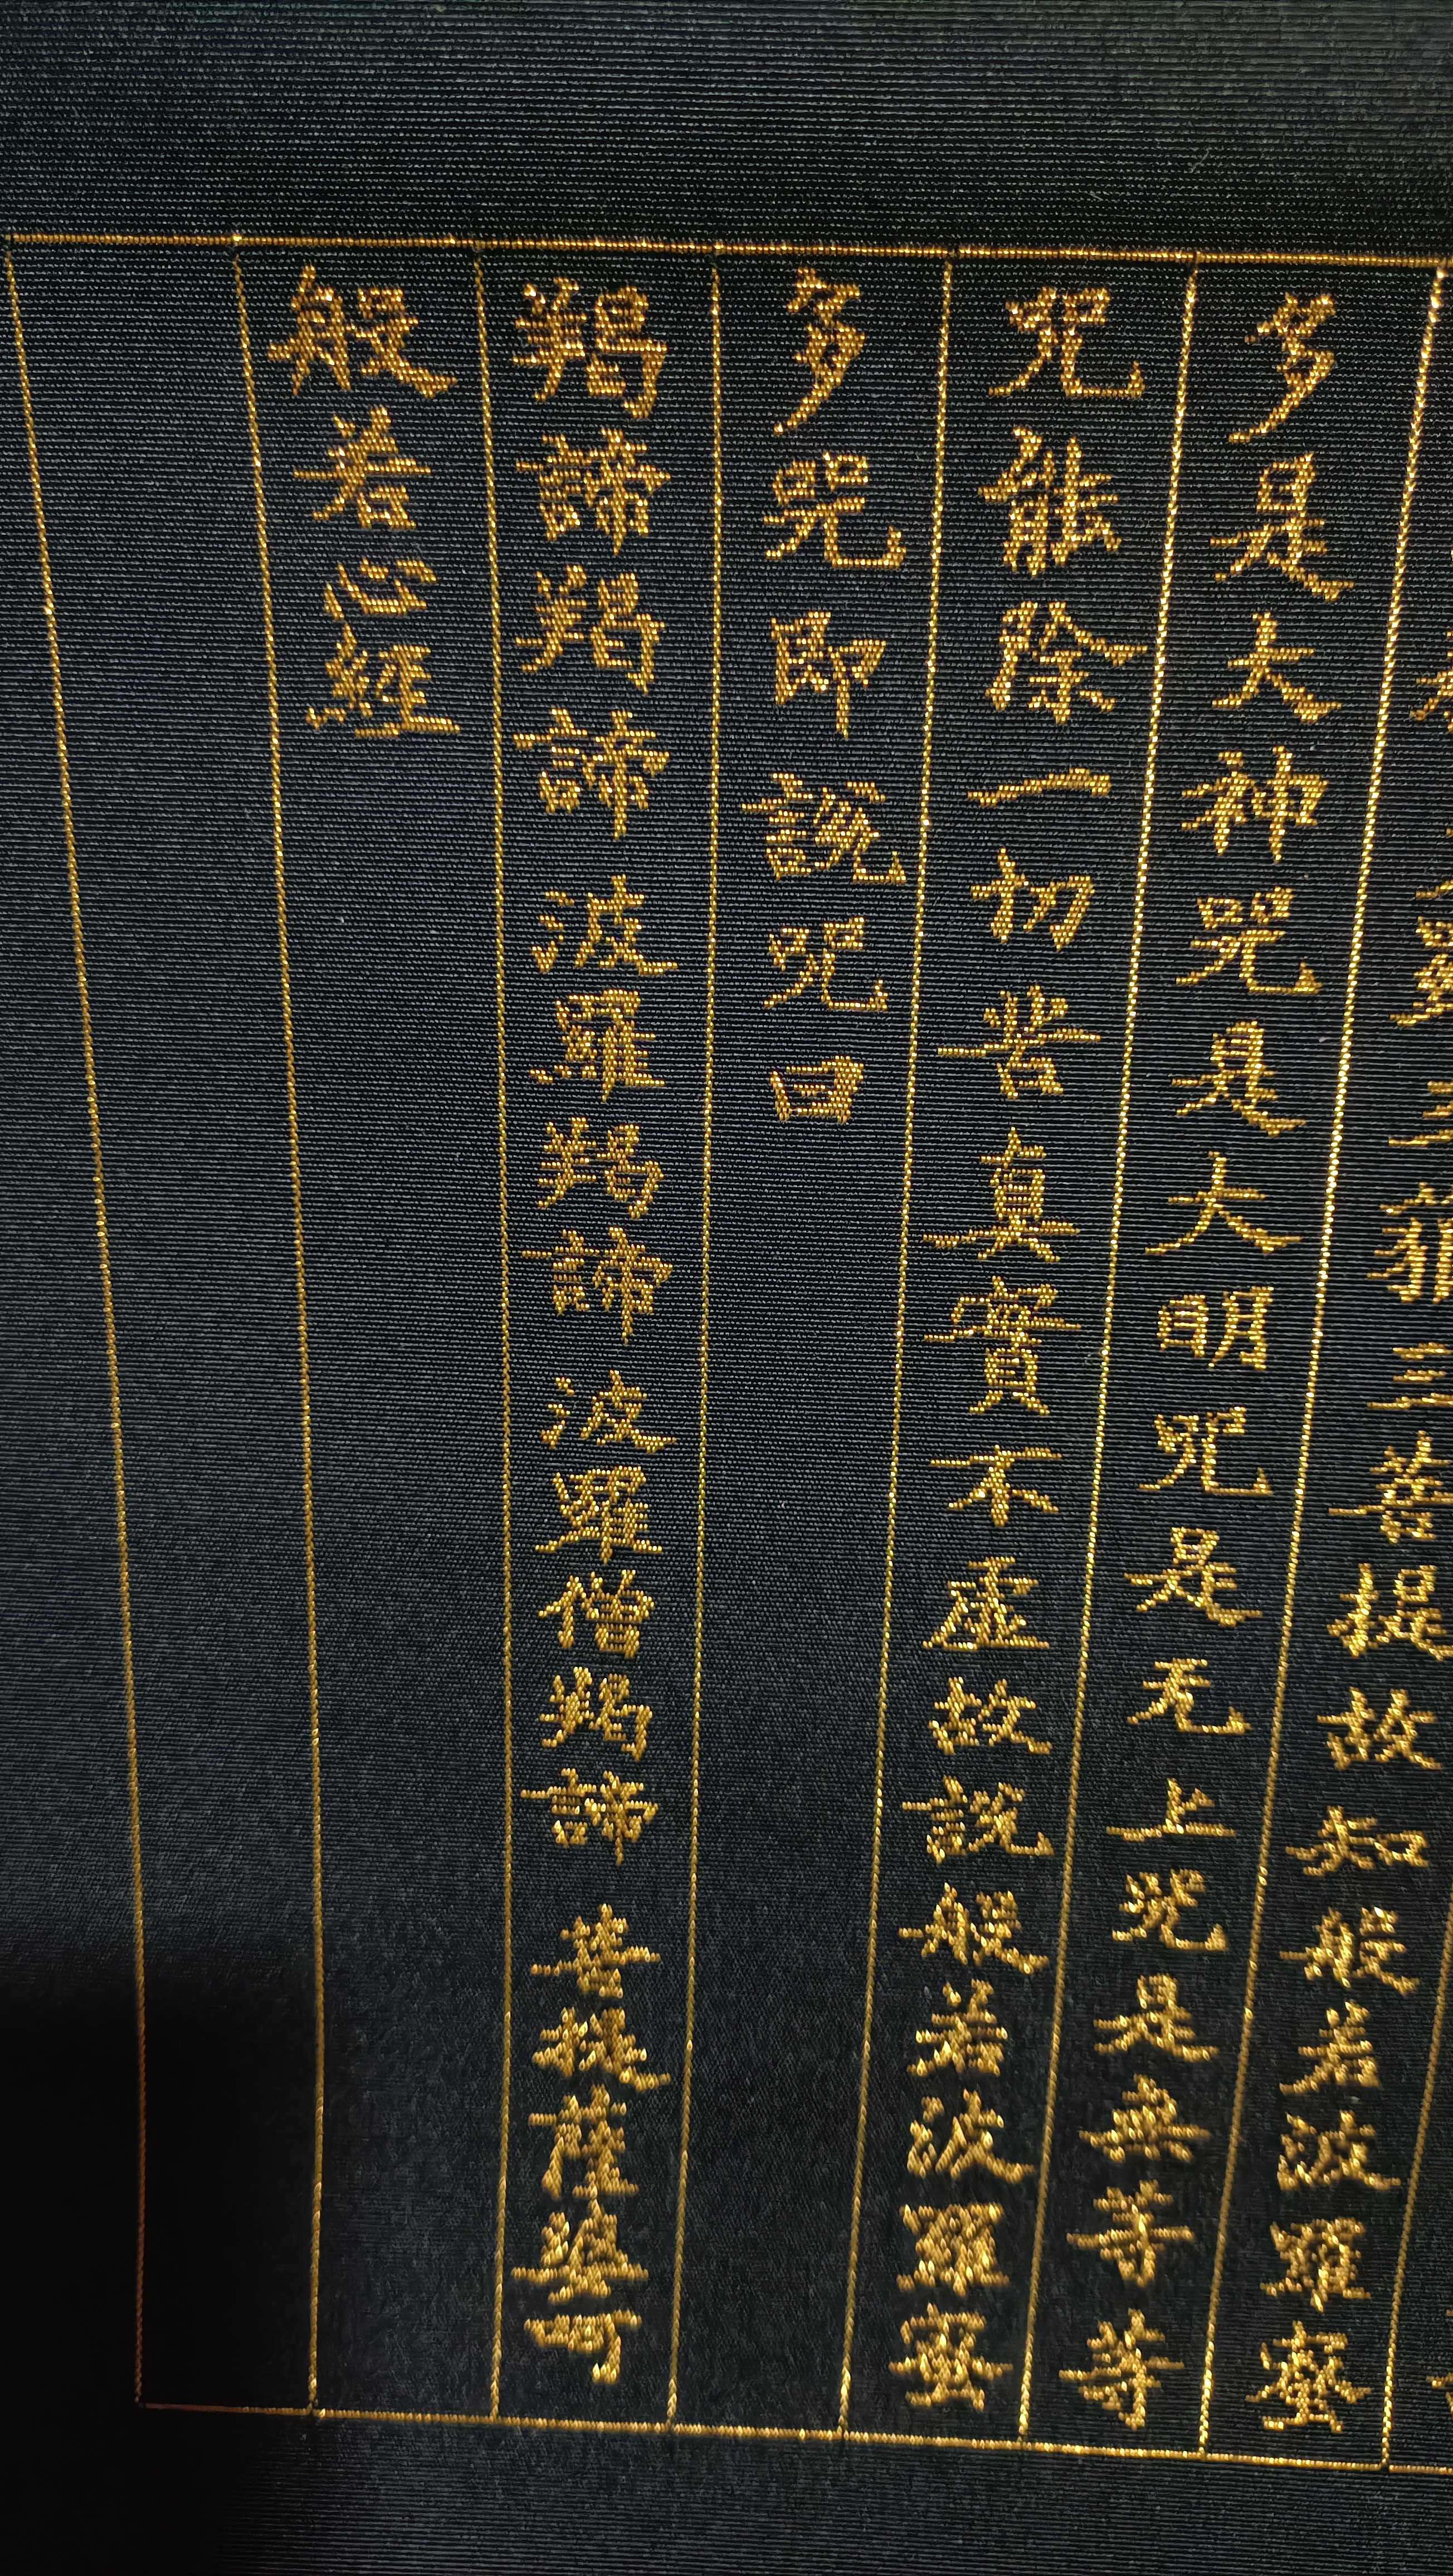 三藐三菩提故知般若波羅蜜
多是大神咒是大明咒是无上咒是無等等
咒能除一切苦真實不虛故說般若波羅蜜
多咒即說咒曰
羯諦羯諦 波羅羯諦 波羅僧羯諦 菩提薩婆呵
般若心經